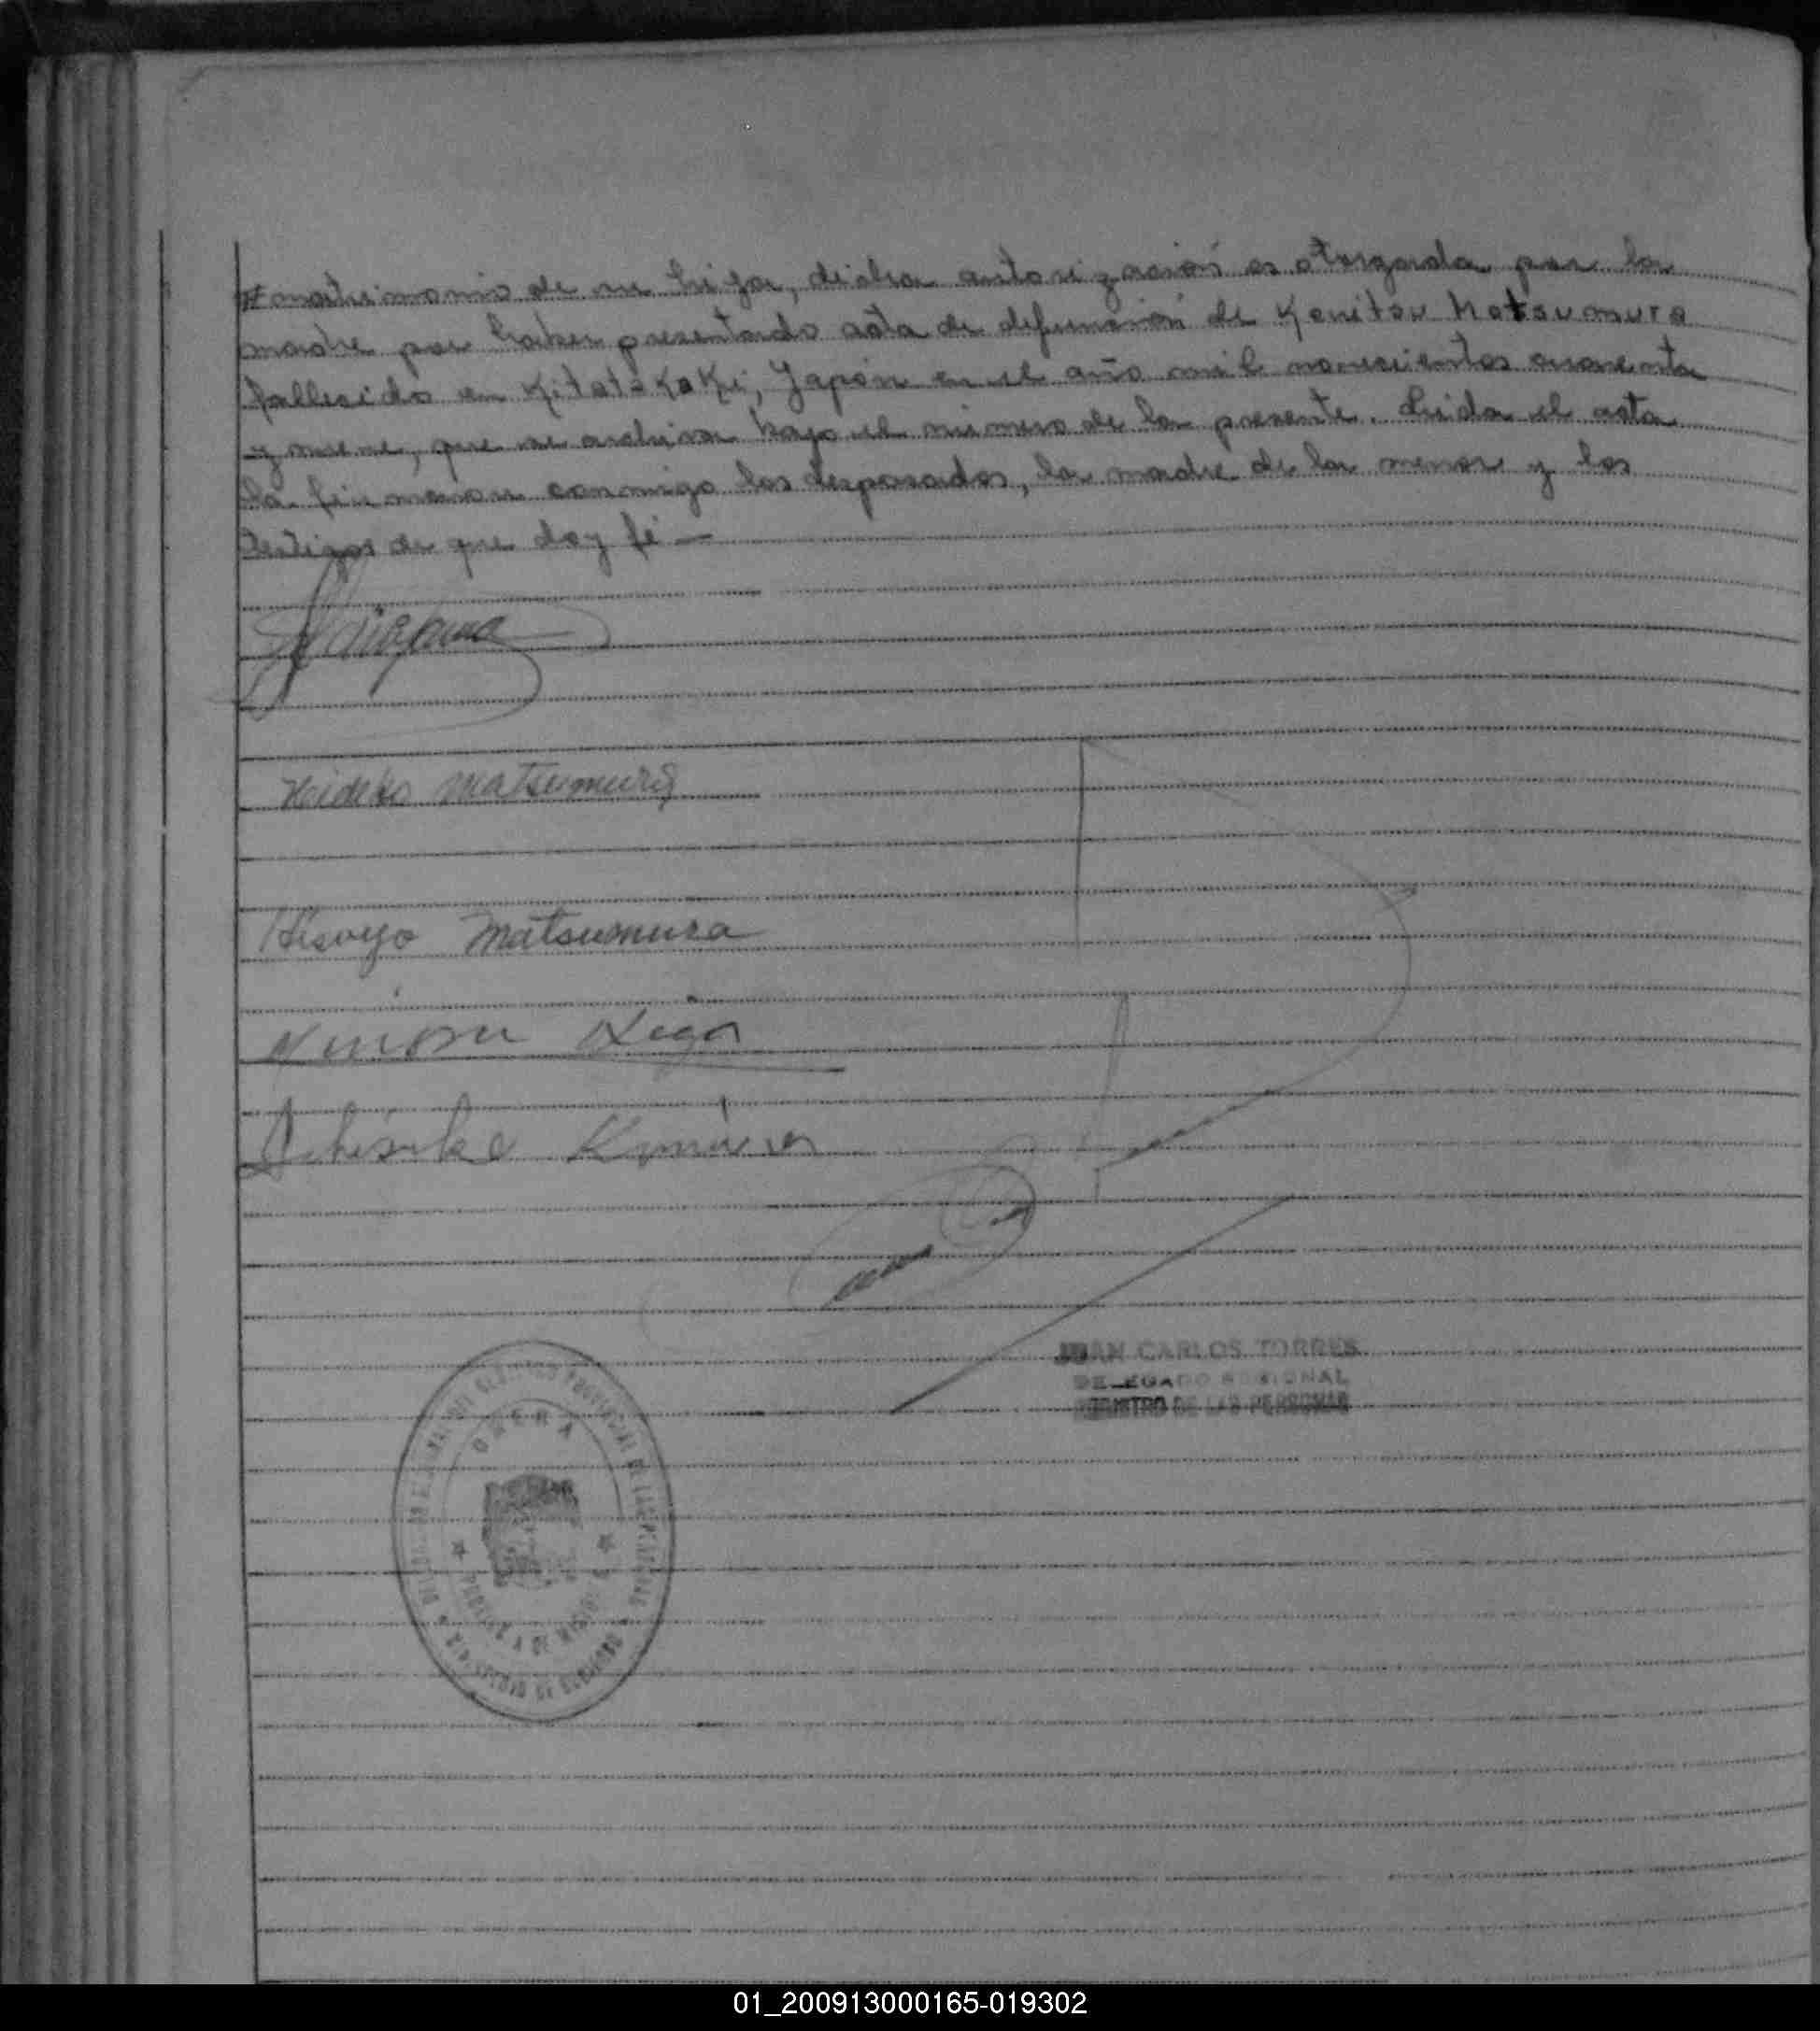 matrimonio de su hija, dicha autorización es otorgada por la
madre por haber presentado acta de defunción de Kenitsu Matsumura
fallecido en Kitatakaki, Japón en el año mil novecientos cuarenta
y nueve, que se archiva bajo el número de la presente. Leida el acta
la firmaron conmigo los desposados, la madre de la menor y los
testigos de que doy fé —
Hideko Matsumura
Hisayo Matsumura
JUAN CARLOS TORRES
DELEGADO REGIONAL
REGISTRO DE LAS PERSONAS
OBERA
01_200913000165-019302